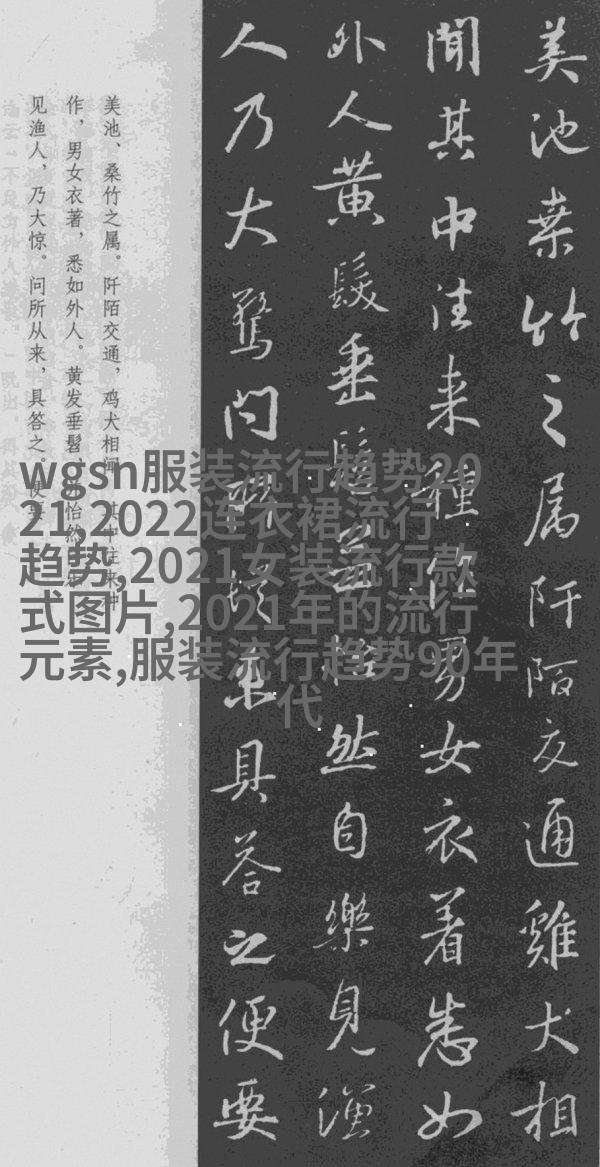 美池桒竹之属阡陌交通雞犬相
聞其中往来種作男女衣着悉如
外人黄髮垂髫並怡然自樂見漁
人乃大驚問所從来具答之便要
美池、桑竹之属。阡陌交通，鸡犬相闻。其中往来种
作，男女衣著，悉如外人。黄发垂髫，并怡然自乐。
见渔人，乃大惊。问所从来，具答之。便要
wgsn服装流行趋势20
21,2022连衣裙流行
趋势,2021女装流行款
式图片,2021年的流行
元素,服装流行趋势90年
代